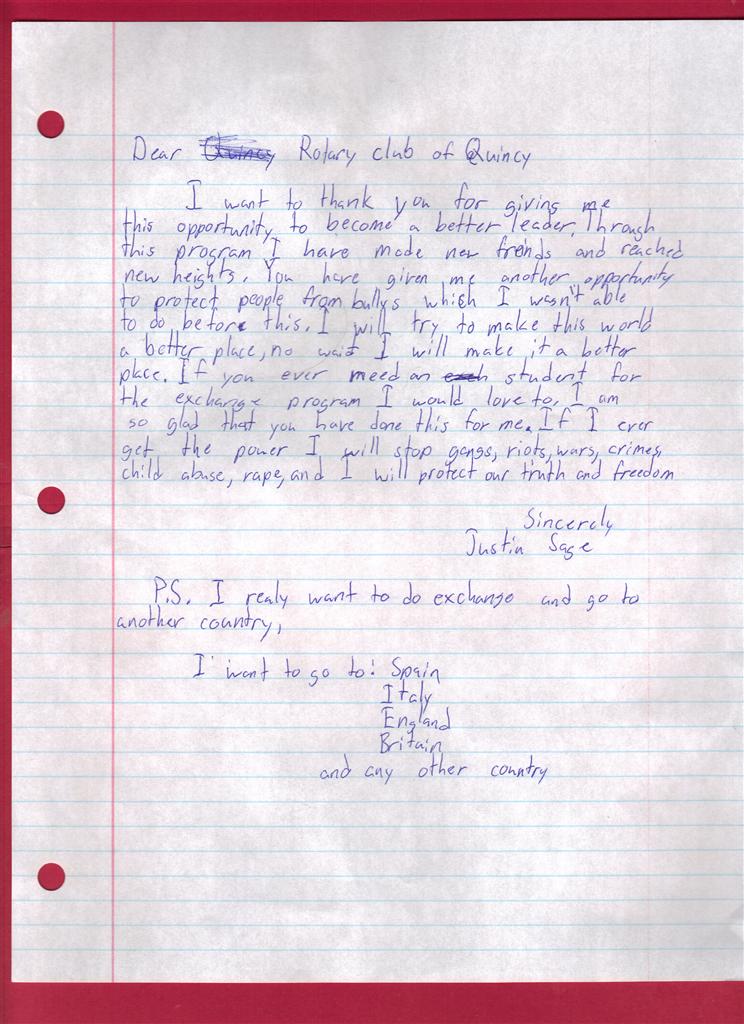 Dear Quincy Rotary club of Quincy
I want to thank you for giving me
this opportunity to become a better leader. Through
this program I have made new freinds and reached
new heights. You have given me another opportunity
to protect people from bullys which I wasn't able
to do before this. I will try to make this world
a better place, no wait I will make it a better
place. If you ever need an exch student for
the exchange program I would love to. I am
so glad that you have done this for me. If I ever
get the power I will stop gangs, riots, wars, crimes,
child abuse, rape, and I will protect our truth and freedom
Sincerely
Justin Sage
P.S. I realy want to do exchange and go to
another country,
I want to go to: Spain
Italy
England
Britain
and any other country